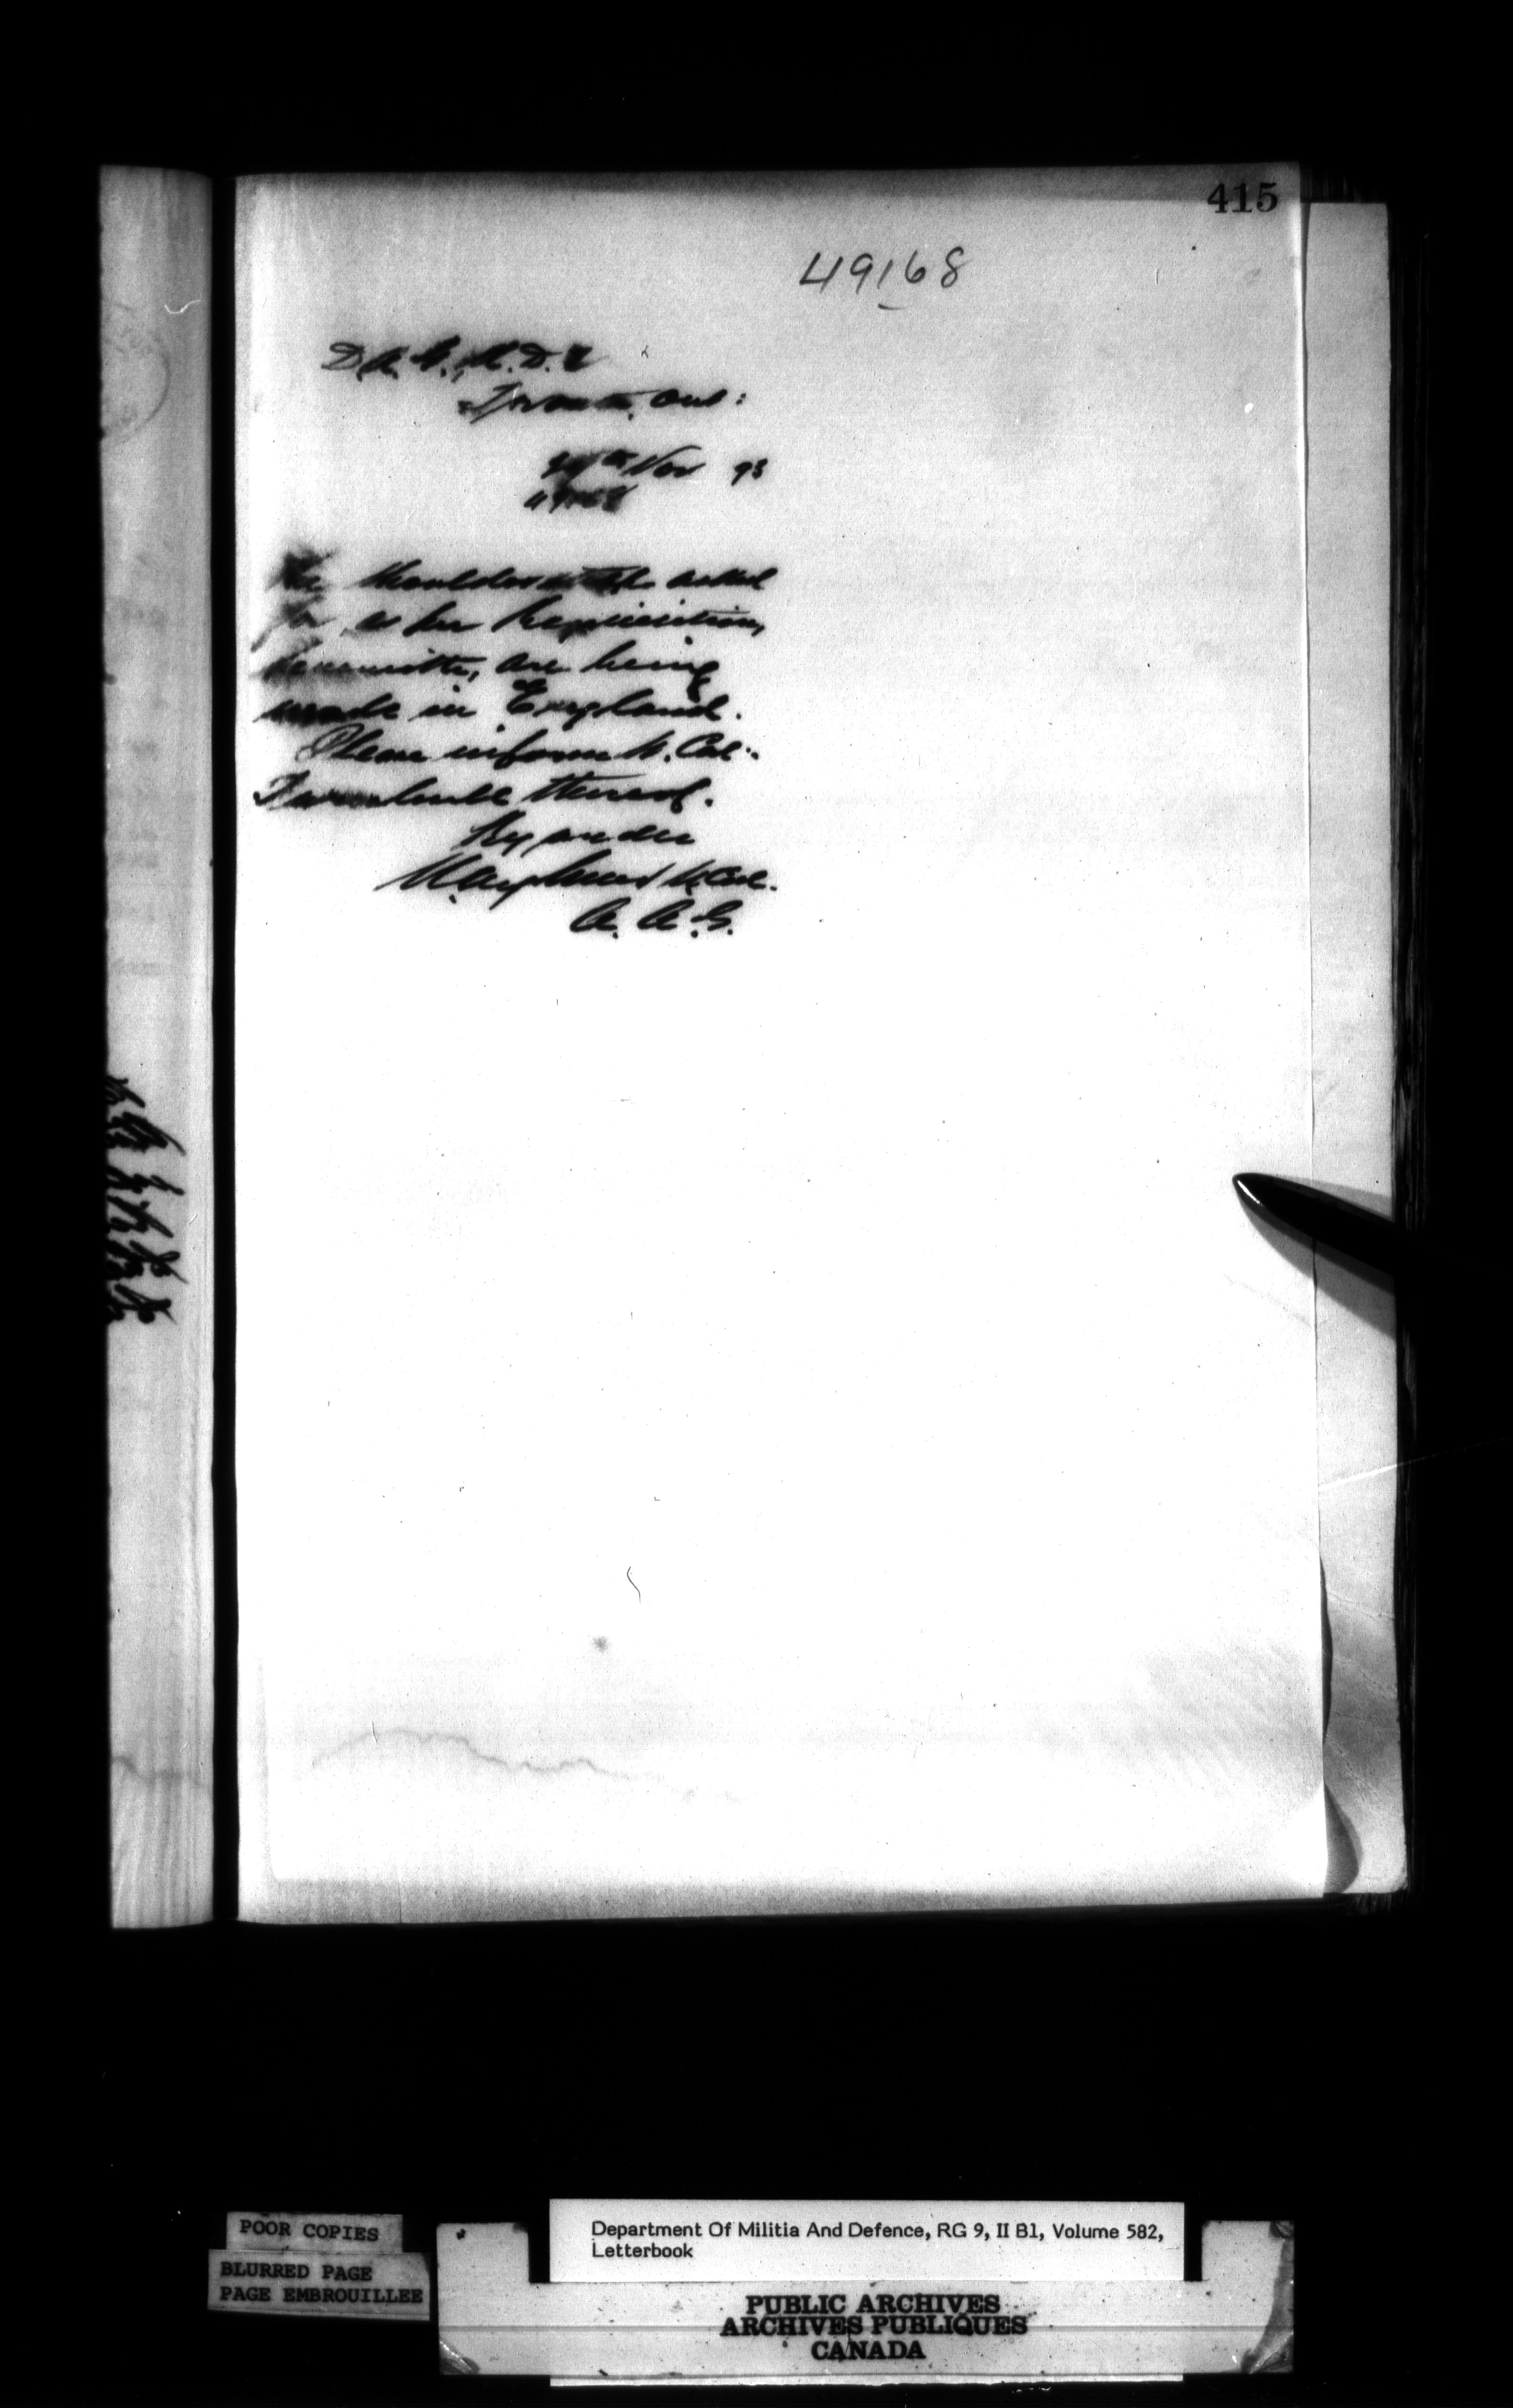 415
49168
D.A.G., M.D. 2
Toronto, Ont:
Nov 93
49168
The shoulder asked
for, as per Requisition
herewith, are being
made in England.
Please inform Lt. Col:
thereof.
By order
Lt. Col.
A. A. G.
POOR COPIES
BLURRED PAGE
PAGE EMBROUILLEE
Department Of Militia And Defence, RG 9, II B1, Volume 582,
Letterbook
PUBLIC ARCHIVES
ARCHIVES PUBLIQUES
CANADA